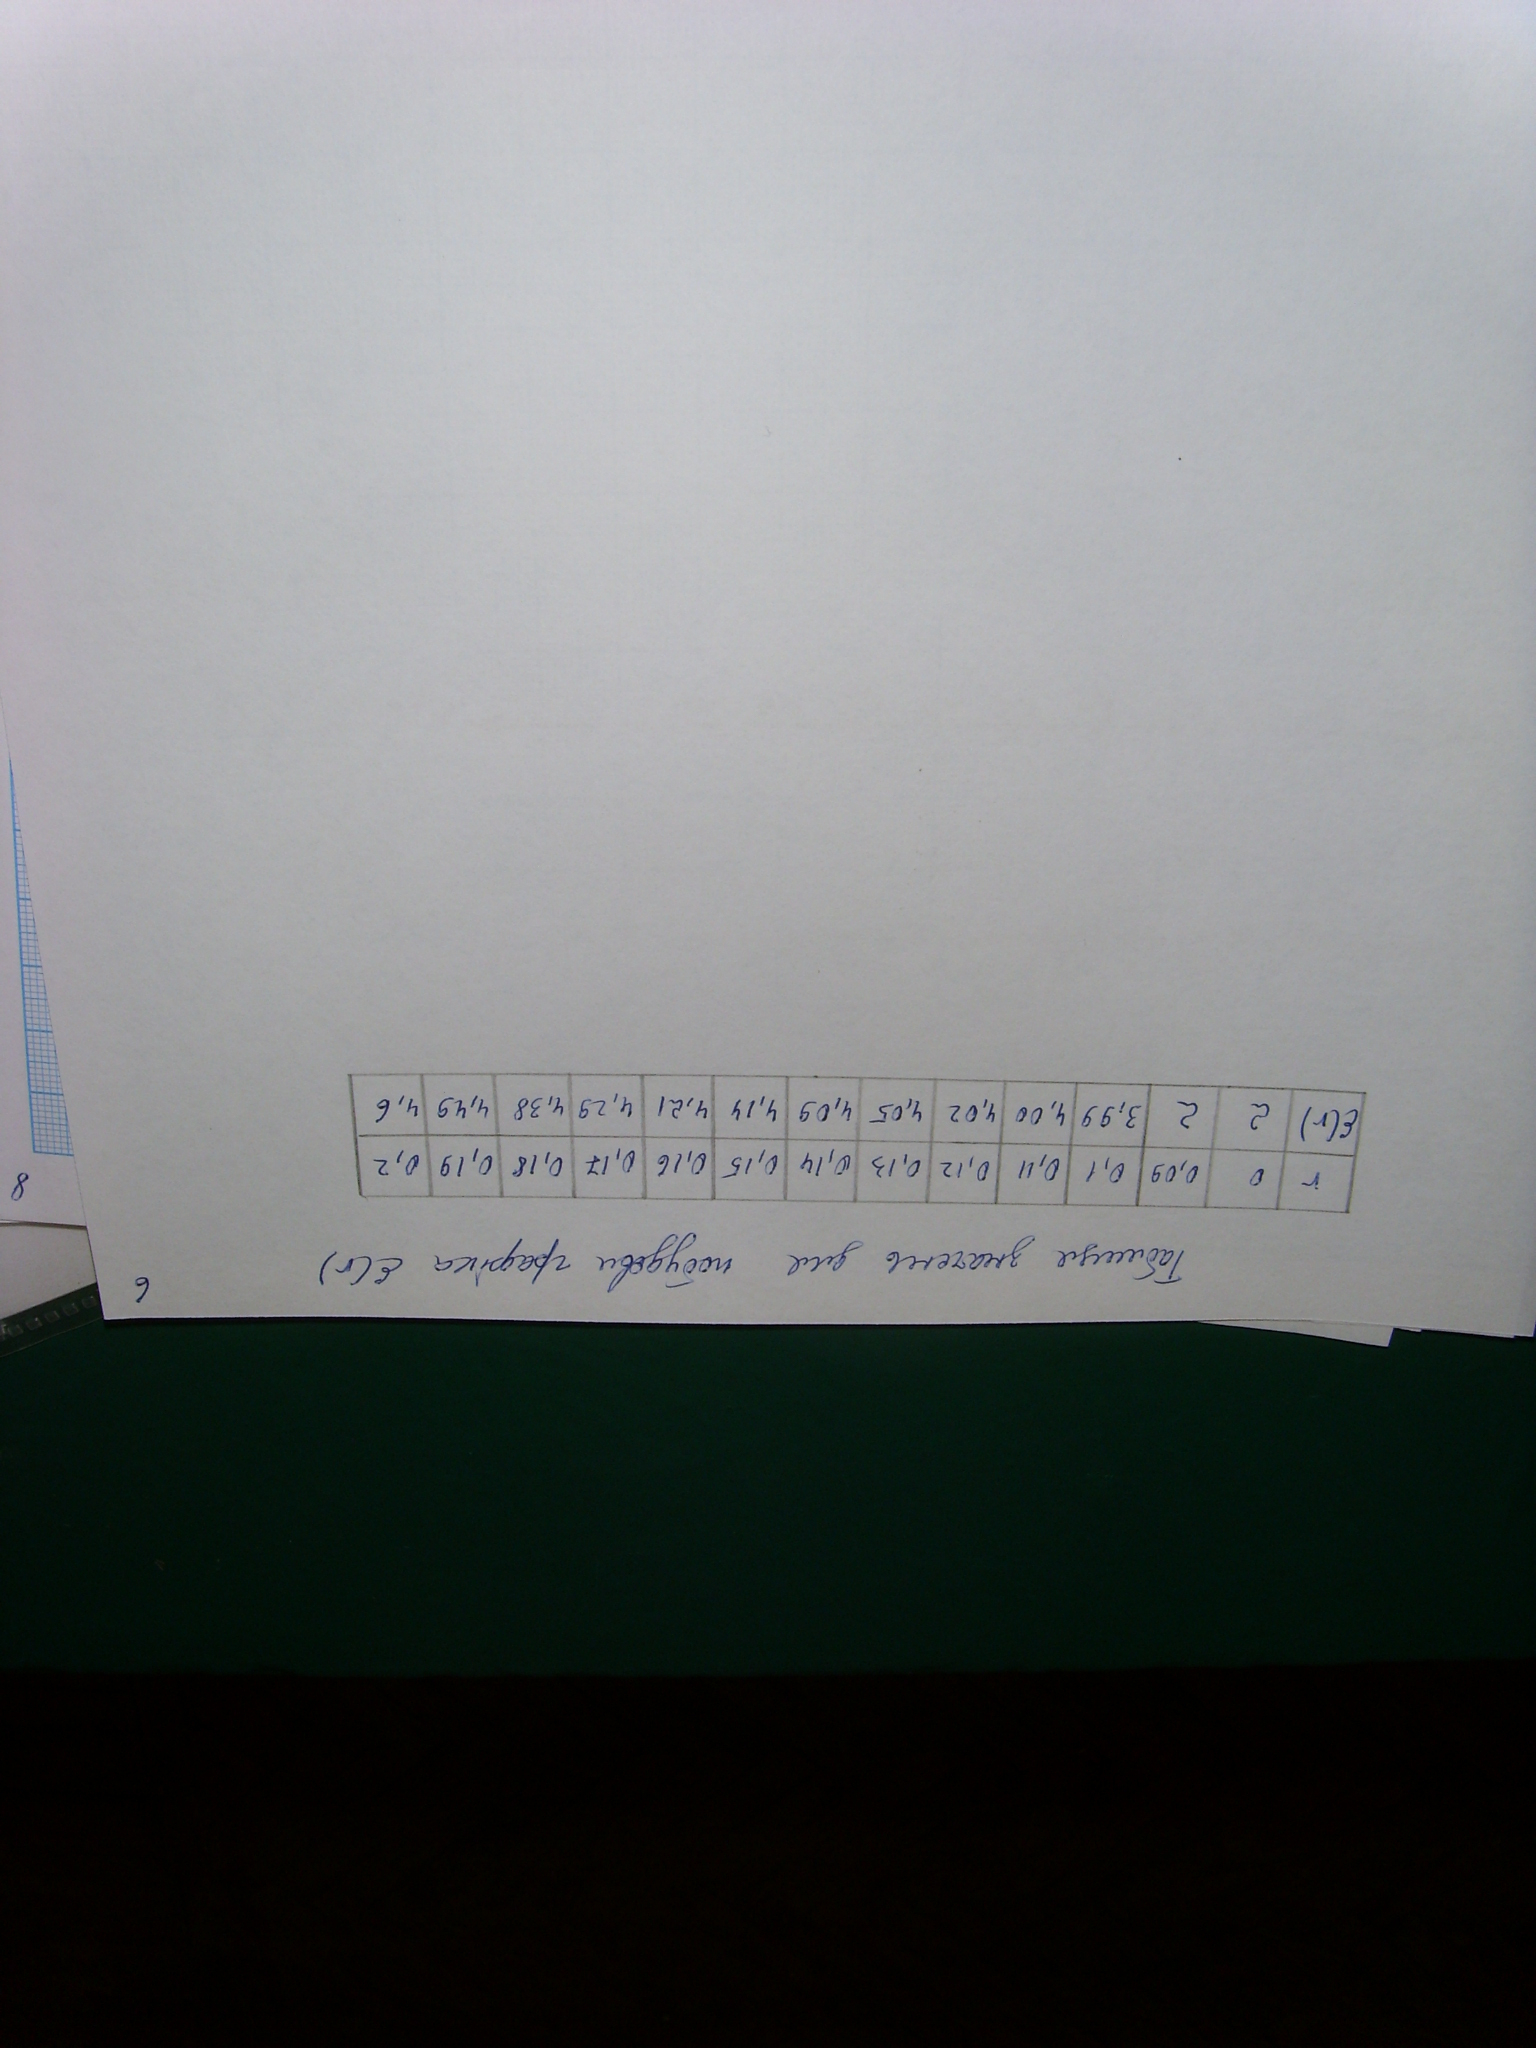 6
Таблиця значень для побудови графіка ε(r)
r 0 0,09 0,1 0,11 0,12 0,13 0,14 0,15 0,16 0,17 0,18 0,19 0,2
ε(r) 2 2 3,99 4,00 4,02 4,05 4,09 4,14 4,21 4,29 4,38 4,49 4,6
8